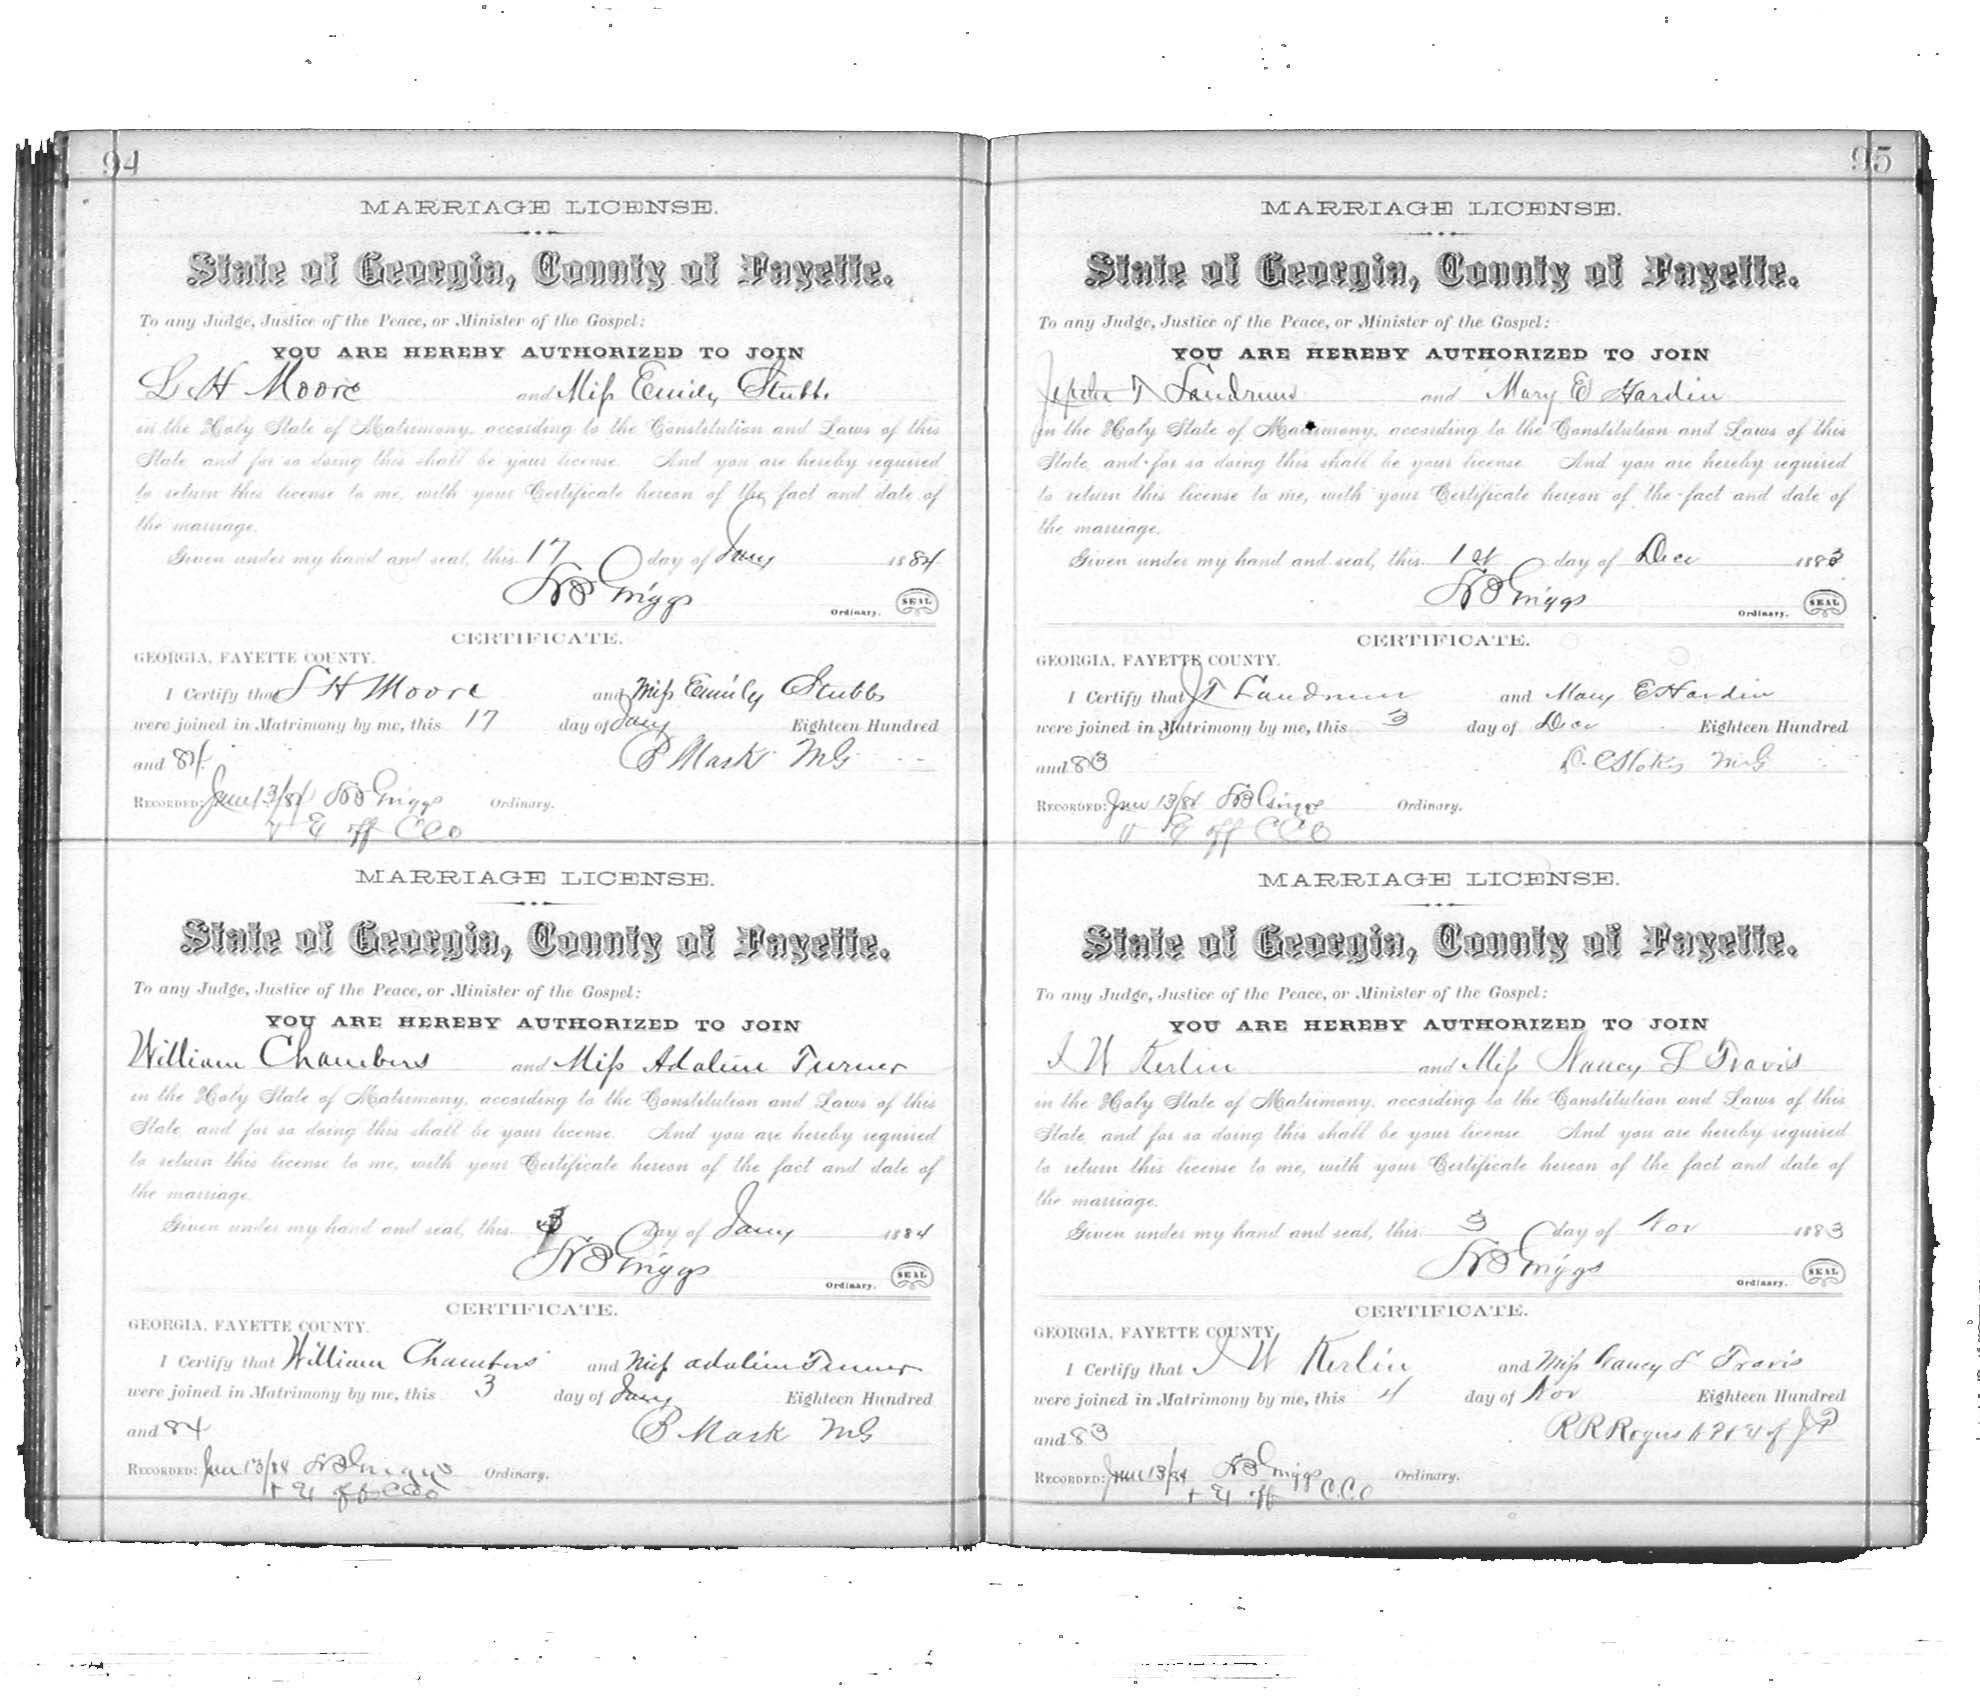 94
MARRIAGE LICENSE.
State of Georgia, County of Fayette.
To any Judge, Justice of the Peace, or Minister of the Gospel:
YOU ARE HEREBY AUTHORIZED TO JOIN
H Moore and Miss Emily Stubbs
in the Holy State of Matrimony, according to the Constitution and Laws of this
State, and for so doing this shall be your license. And you are hereby required
to return this license to me, with your Certificate hereon of the fact and date of
the marriage.
Given under my hand and seal, this 17 day of Jany 1884
Griggs
Ordinary. SEAL
CERTIFICATE.
GEORGIA, FAYETTE COUNTY.
I Certify that H Moore and Miss Emily Stubbs
were joined in Matrimony by me, this 17 day of Jany Eighteen Hundred
and 84. Mask MG
RECORDED: 13/84 Griggs Ordinary.
off CCO
MARRIAGE LICENSE.
State of Georgia, County of Fayette.
To any Judge, Justice of the Peace, or Minister of the Gospel:
YOU ARE HEREBY AUTHORIZED TO JOIN
William Chambers and Miss Adaline Turner
in the Holy State of Matrimony, according to the Constitution and Laws of this
State, and for so doing this shall be your license. And you are hereby required
to return this license to me, with your Certificate hereon of the fact and date of
the marriage.
Given under my hand and seal, this 3 day of Jany 1884
Griggs
Ordinary. SEAL
CERTIFICATE.
GEORGIA, FAYETTE COUNTY.
I Certify that William Chambers and Miss adaline Turner
were joined in Matrimony by me, this 3 day of Jany Eighteen Hundred
and 84 Mask MG
RECORDED: 13/84 Griggs Ordinary.
95
MARRIAGE LICENSE.
State of Georgia, County of Fayette.
To any Judge, Justice of the Peace, or Minister of the Gospel:
YOU ARE HEREBY AUTHORIZED TO JOIN
T Landrum and Mary E Hardin
in the Holy State of Matrimony, according to the Constitution and Laws of this
State, and for so doing this shall be your license. And you are hereby required
to return this license to me, with your Certificate hereon of the fact and date of
the marriage.
Given under my hand and seal, this 1st day of Dec 1883
Griggs
Ordinary. SEAL
CERTIFICATE.
GEORGIA, FAYETTE COUNTY.
I Certify that J T Landrum and Mary E Hardin
were joined in Matrimony by me, this 3 day of Dec Eighteen Hundred
and 83 Stokes MG
RECORDED: 13/84 Griggs Ordinary.
off CCO
MARRIAGE LICENSE.
State of Georgia, County of Fayette.
To any Judge, Justice of the Peace, or Minister of the Gospel:
YOU ARE HEREBY AUTHORIZED TO JOIN
W Kerlin and Miss Nancy Travis
in the Holy State of Matrimony, according to the Constitution and Laws of this
State, and for so doing this shall be your license. And you are hereby required
to return this license to me, with your Certificate hereon of the fact and date of
the marriage.
Given under my hand and seal, this 3 day of Nov 1883
Griggs
Ordinary. SEAL
CERTIFICATE.
GEORGIA, FAYETTE COUNTY.
I Certify that W Kerlin and Miss Nancy Travis
were joined in Matrimony by me, this 4 day of Nov Eighteen Hundred
and 83 R R Rogers JP
RECORDED: 13/84 Griggs Ordinary.
off C.C.O